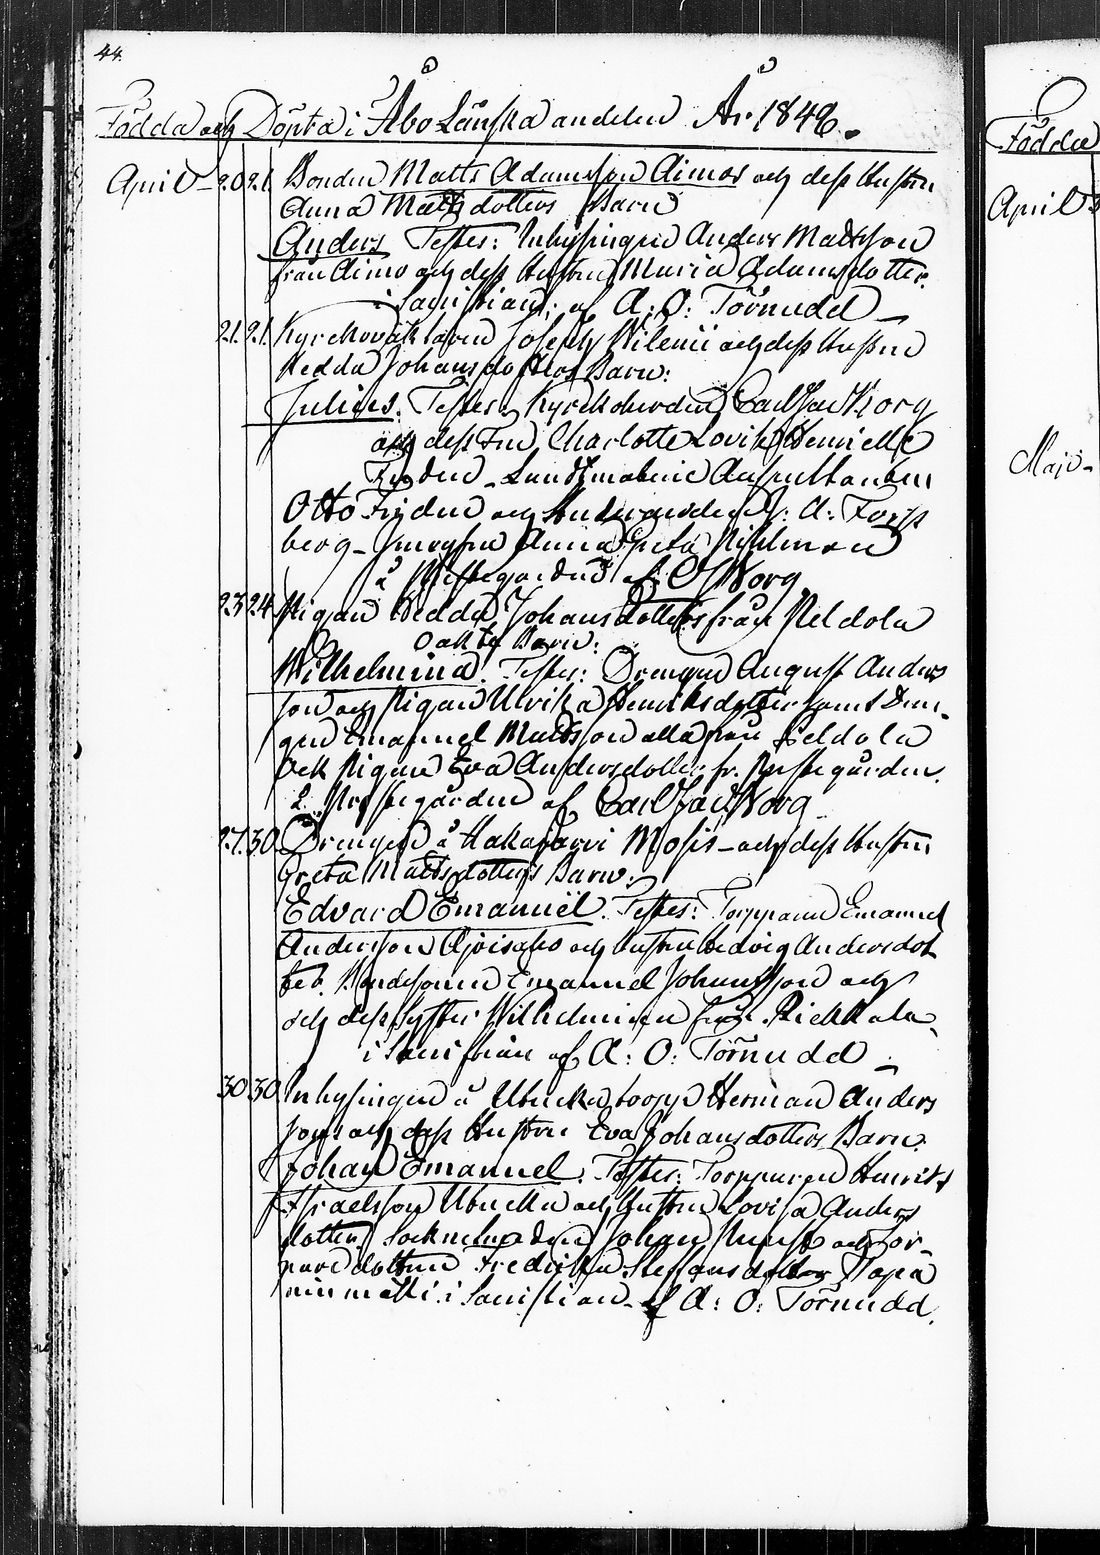 44.
Födda och Döpta i Åbo Länska andelen År 1846.
April 20 21 Bonden Matts Adamsson Aimos och dess Hustru
Anna Mattsdotters Barn
Anders Testes: Inhysingen Anders Mattsson
från Aimo och dess Hustru Maria Adamsdotter.
i Sacristian; af A: O: Törnudd
21. 21. Kyrckovaktaren Joseph Wilenii och dess Hustru
Hedda Johansdotters Barn:
Julius. Testes: Kyrckoherden Carl Jac Borg
och dess Fru Charlotte Lovisa Henriette
Frydén
Otto Frydén och A: Forss
berg - Jungfru Anna Greta
å Prestegården af CJ Borg
23 24 Pigan Hedda Johansdotters från Peldola
oäkta Barn:
Wilhelmina. Testes: Drengen August Anders
son och Pigan Ulrika Henriksdotter samt Dren-
gen Emanuel Mattsson alla från Peldola
och Pigan Eva Andersdotter fr. Prestegården.
å Prestegården af Carl Jac Borg
27. 30. Drengen å Hakajärvi Mosis och dess Hustru
Greta Mattsdotters Barn:
Edvard Emanuël. Testes: Torpparen Emanuel
Andersson och Hustru Hedvig Andersdot
ter. Bondesonen Emanuel Johansson och
och dess Syster Wilhelmina från
i Sacristian af A: O: Törnudd
30 30 Inhysingen å torp Herman Anders
sons och dess Hustru Eva Johansdotters Barn.
Johan Emanuel. Testes: Torpparen Henrik
Israelsson och Hustru Lovisa Anders
dotter, Johan och Tor-
pare dottren Fredrika Staffansdotter
i Sacristian af A: O: Törnudd.
Födda
April
Maji